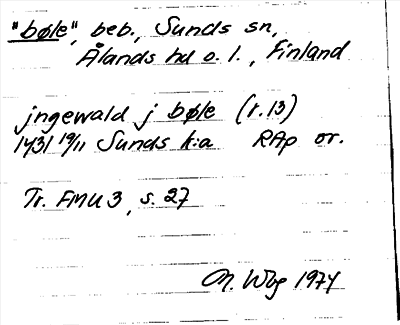 "bøle", beb., Sunds sn,
Ålands hd o. l., Finland
jngewald j bøle (r. 13)
1431 19/11 Sunds k:a RAp or.
Tr. FMU 3, s. 27
M. Wbg 1974